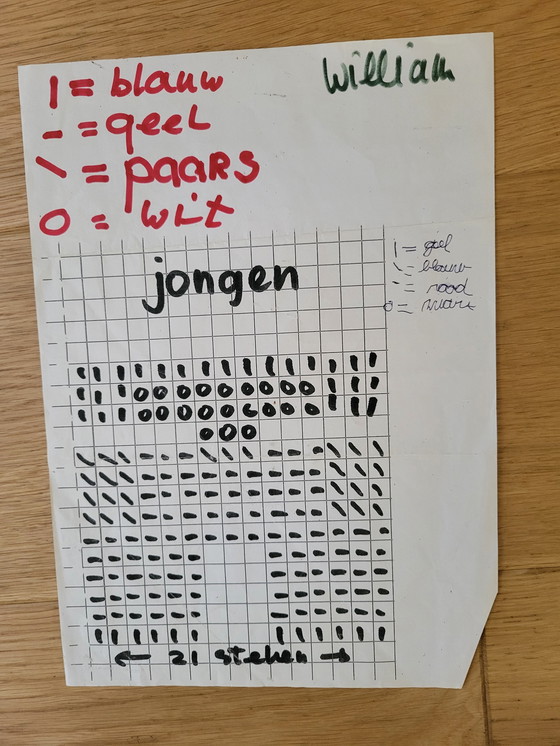 William
| = blauw
- = geel
\ = paars
O = wit
jongen
| = geel
\ = blauw
- = rood
O = zwart
← 21 steken →